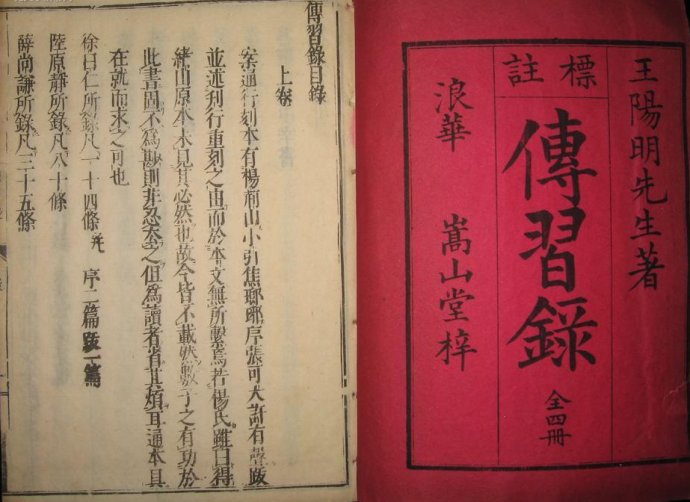 王陽明先生著
標註
傳習錄
全四冊
浪華 嵩山堂梓
傳習錄目錄
上卷
案通行刻本有楊荊山小引焦瑯瑘序張可大許有聲跋
並述刊行重刻之由而於本文無所繫焉若楊氏雖曰得
緒山原本未見其必然也故今皆不載然數子之有功於
此書固不為尠則非忍去之但為讀者省其煩耳通本具
在就而求之可也
徐曰仁所錄凡一十四條并 序二篇 跋一篇
陸原靜所錄凡八十條
薛尚謙所錄凡三十五條